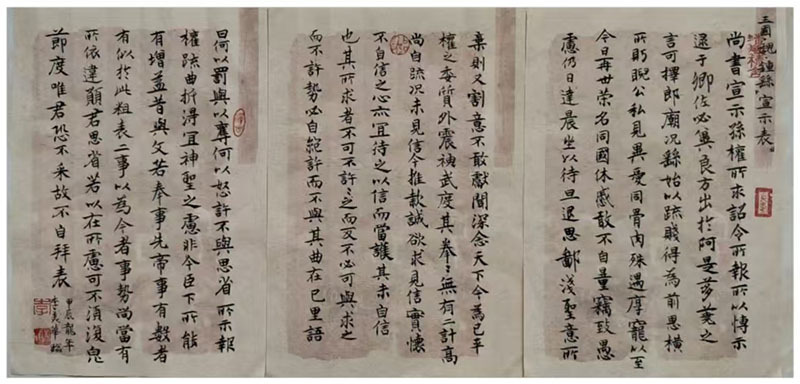 三國魏鍾繇宣示表
尚書宣示孫權所求詔令所報所以博示
逮于卿佐必冀良方出於阿是芻蕘之
言可擇郎廟況繇始以疏賤得為前恩橫
所盱睨公私見異愛同骨肉殊遇厚寵以至
今日再世榮名同國休慼敢不自量竊致愚
慮仍日達晨坐以待旦退思鄙淺聖意所
棄則又割意不敢獻聞深念天下今為已平
權之委質外震神武度其拳〻無有二計高
尚自疏況未見信今推款誠欲求見信實懷
不自信之心亦宜待之以信而當護其未自信
也其所求者不可不許〻之而反不必可與求之
而不許勢必自絕許而不與其曲在己里語
曰何以罰與以奪何以怒許不與思省所示報
權疏曲折得宜神聖之慮非今臣下所能
有增益昔與文若奉事先帝事有數者
有似於此粗表二事以為今者事勢尚當有
所依違願君思省若以在所慮可不須復皃
節度唯君恐不采故不自拜表
甲辰龍年